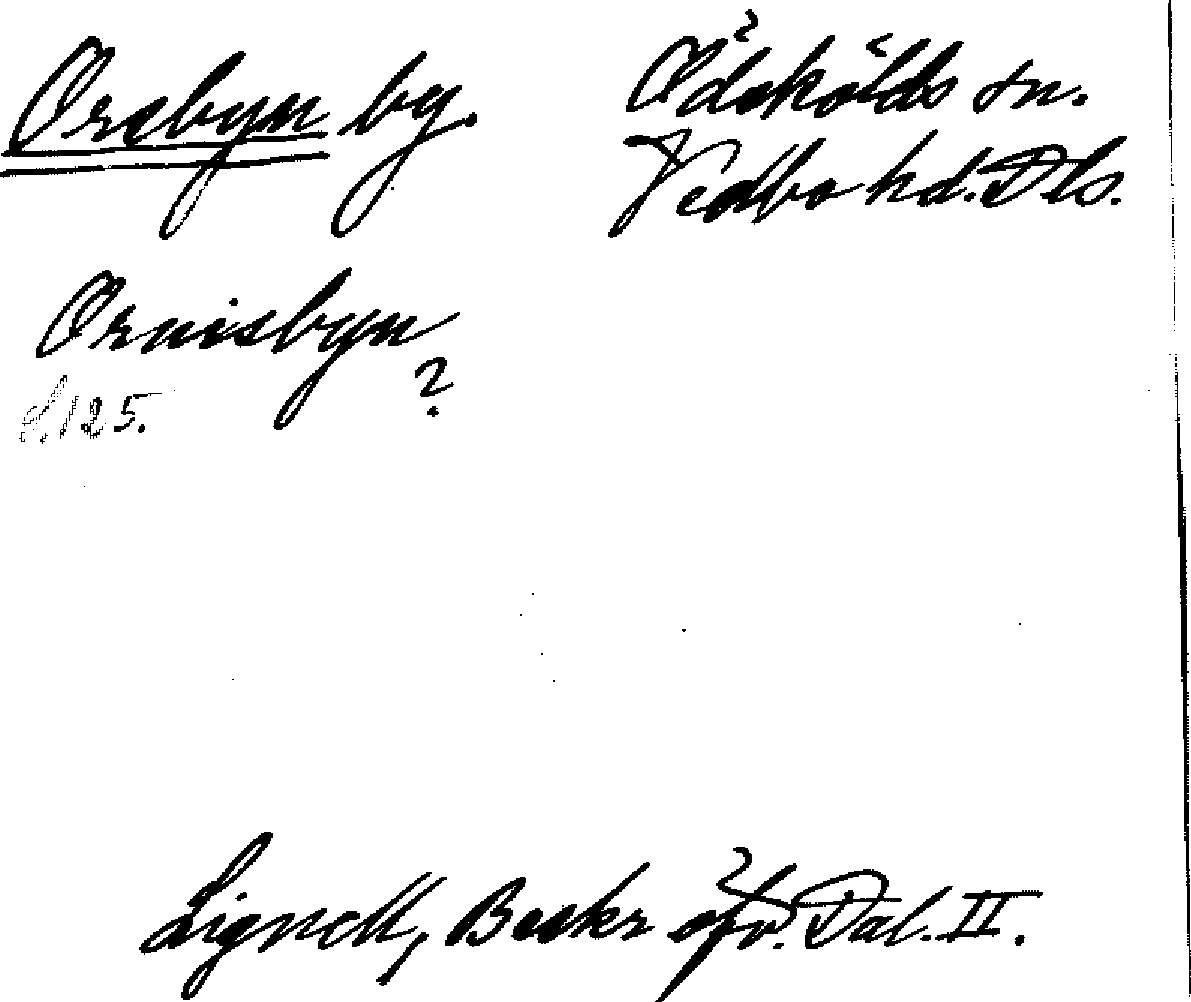 Orsbyn by.
Ödskölds sn.
Vedbo hd. Dls.
Ornisbyn
?
S. 125.
Lignell, Beskr öfv. Dal. II.